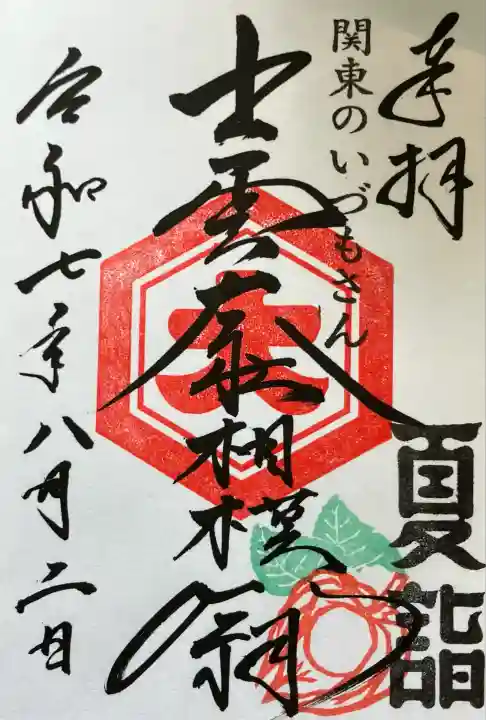 奉拝
夏詣
関東のいづもさん
出雲大社相模分祠
大
令和七年八月二日